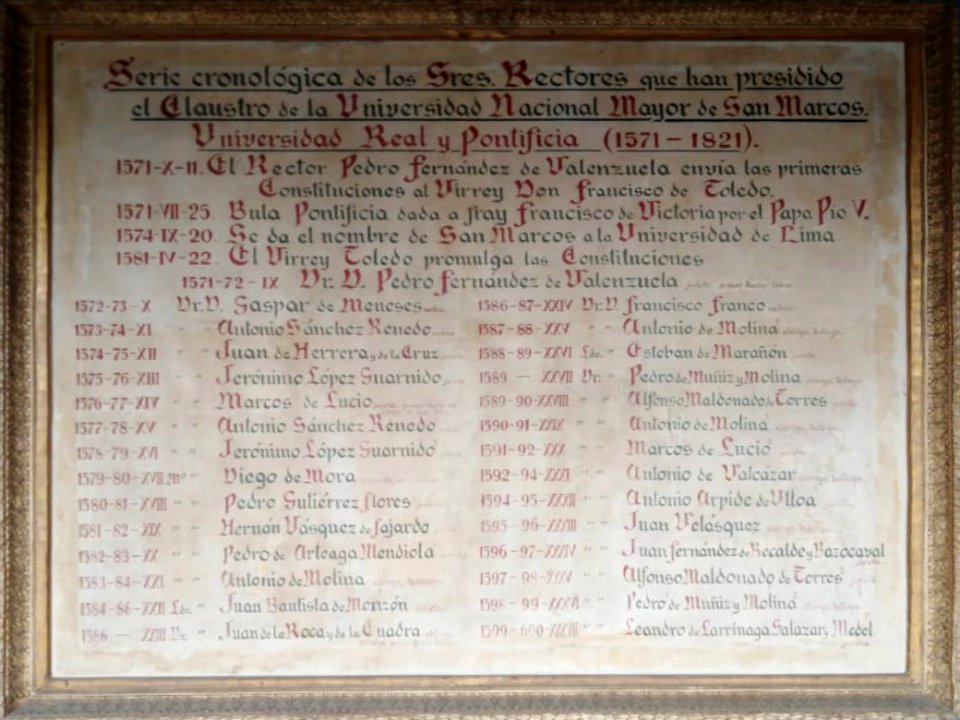 Serie cronológica de los Sres. Rectores que han presidido
el Claustro de la Universidad Nacional Mayor de San Marcos.
Universidad Real y Pontificia (1571-1821).
1571-X-11. El Rector Pedro Fernández de Valenzuela envía las primeras
Constituciones al Virrey Don Francisco de Toledo.
1571-VII-25. Bula Pontificia dada a fray Francisco de Victoria por el Papa Pio V.
1574-IX-20. Se da el nombre de San Marcos a la Universidad de Lima
1581-IV-22. El Virrey Toledo promulga las Constituciones
1571-72-IX Dr. D. Pedro Fernández de Valenzuela
1572-73-X Dr. D. Gaspar de Meneses
1573-74-XI " " Antonio Sánchez Renedo
1574-75-XII " " Juan de Herrera y de la Cruz
1575-76-XIII " " Jerónimo López Guarnido
1576-77-XIV " " Marcos de Lucio
1577-78-XV " " Antonio Sánchez Renedo
1578-79-XVI " " Jerónimo López Guarnido
1579-80-XVII Mº " Diego de Mora
1580-81-XVIII " " Pedro Gutiérrez flores
1581-82-XIX " " Hernán Vásquez de fajardo
1582-83-XX " " Pedro de Arteaga Mendiola
1583-84-XXI " " Antonio de Molina
1584-86-XXII Lde. " Juan Bautista de Monzón
1586 — XXIII Dr. " Juan de la Roca y de la Cuadra
1586-87-XXIV Dr. D. Francisco Franco
1587-88-XXV " " Antonio de Molina
1588-89-XXVI Lde. " Esteban de Marañón
1589 — XXVII Dr. " Pedro de Muñiz y Molina
1589-90-XXVIII " " Alfonso Maldonado de Torres
1590-91-XXIX " " Antonio de Molina
1591-92-XXX " " Marcos de Lucio
1592-94-XXXI " " Antonio de Valcázar
1594-95-XXXII " " Antonio Arpide de Ulloa
1595-96-XXXIII " " Juan Velásquez
1596-97-XXXIV " " Juan fernández de Recalde y Bazocaval
1597-98-XXXV " " Alfonso Maldonado de Torres
1598-99-XXXVI " " Pedro de Muñiz y Molina
1599-600-XXXVII " " Leandro de Larrinaga Salazar, Medel